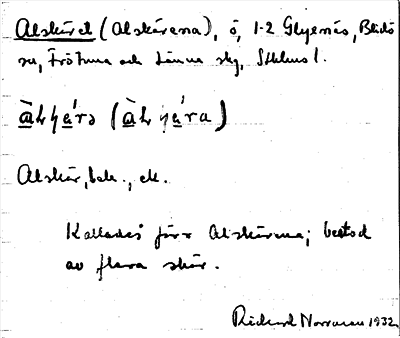 Alskäret (Alskärena), ö, 1-2 Glyenäs, Blidö
sn, Frötuna och Länna skg, Sthlms l.
àlɧä́rə (àlɧä́ra)
Alskär, bek., ek.
Kallades förr Alskärena; bestod
av flera skär.
Rickard Norrman 1932